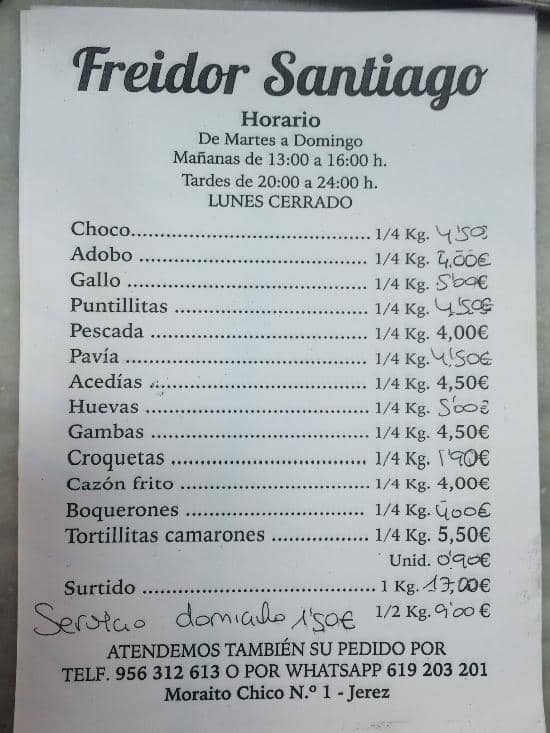 Freidor Santiago
Horario
De Martes a Domingo
Mañanas de 13:00 a 16:00 h.
Tardes de 20:00 a 24:00 h.
LUNES CERRADO
Choco........................................ 1/4 Kg. 4'50
Adobo ....................................... 1/4 Kg. 4,00€
Gallo ......................................... 1/4 Kg. 5'00€
Puntillitas ................................. 1/4 Kg. 4,50€
Pescada ..................................... 1/4 Kg. 4,00€
Pavía ......................................... 1/4 Kg. 4'50€
Acedías ..................................... 1/4 Kg. 4,50€
Huevas ...................................... 1/4 Kg. 5'00€
Gambas ..................................... 1/4 Kg. 4,50€
Croquetas ................................. 1/4 Kg. 1'90€
Cazón frito ................................ 1/4 Kg. 4,00€
Boquerones ............................... 1/4 Kg. 4,00€
Tortillitas camarones ................ 1/4 Kg. 5,50€
Unid. 0'90€
Surtido ....................................... 1 Kg. 17,00€
1/2 Kg. 9'00€
Servicio domicilo 1'50€
ATENDEMOS TAMBIÉN SU PEDIDO POR
TELF. 956 312 613 O POR WHATSAPP 619 203 201
Moraito Chico N.º 1 - Jerez